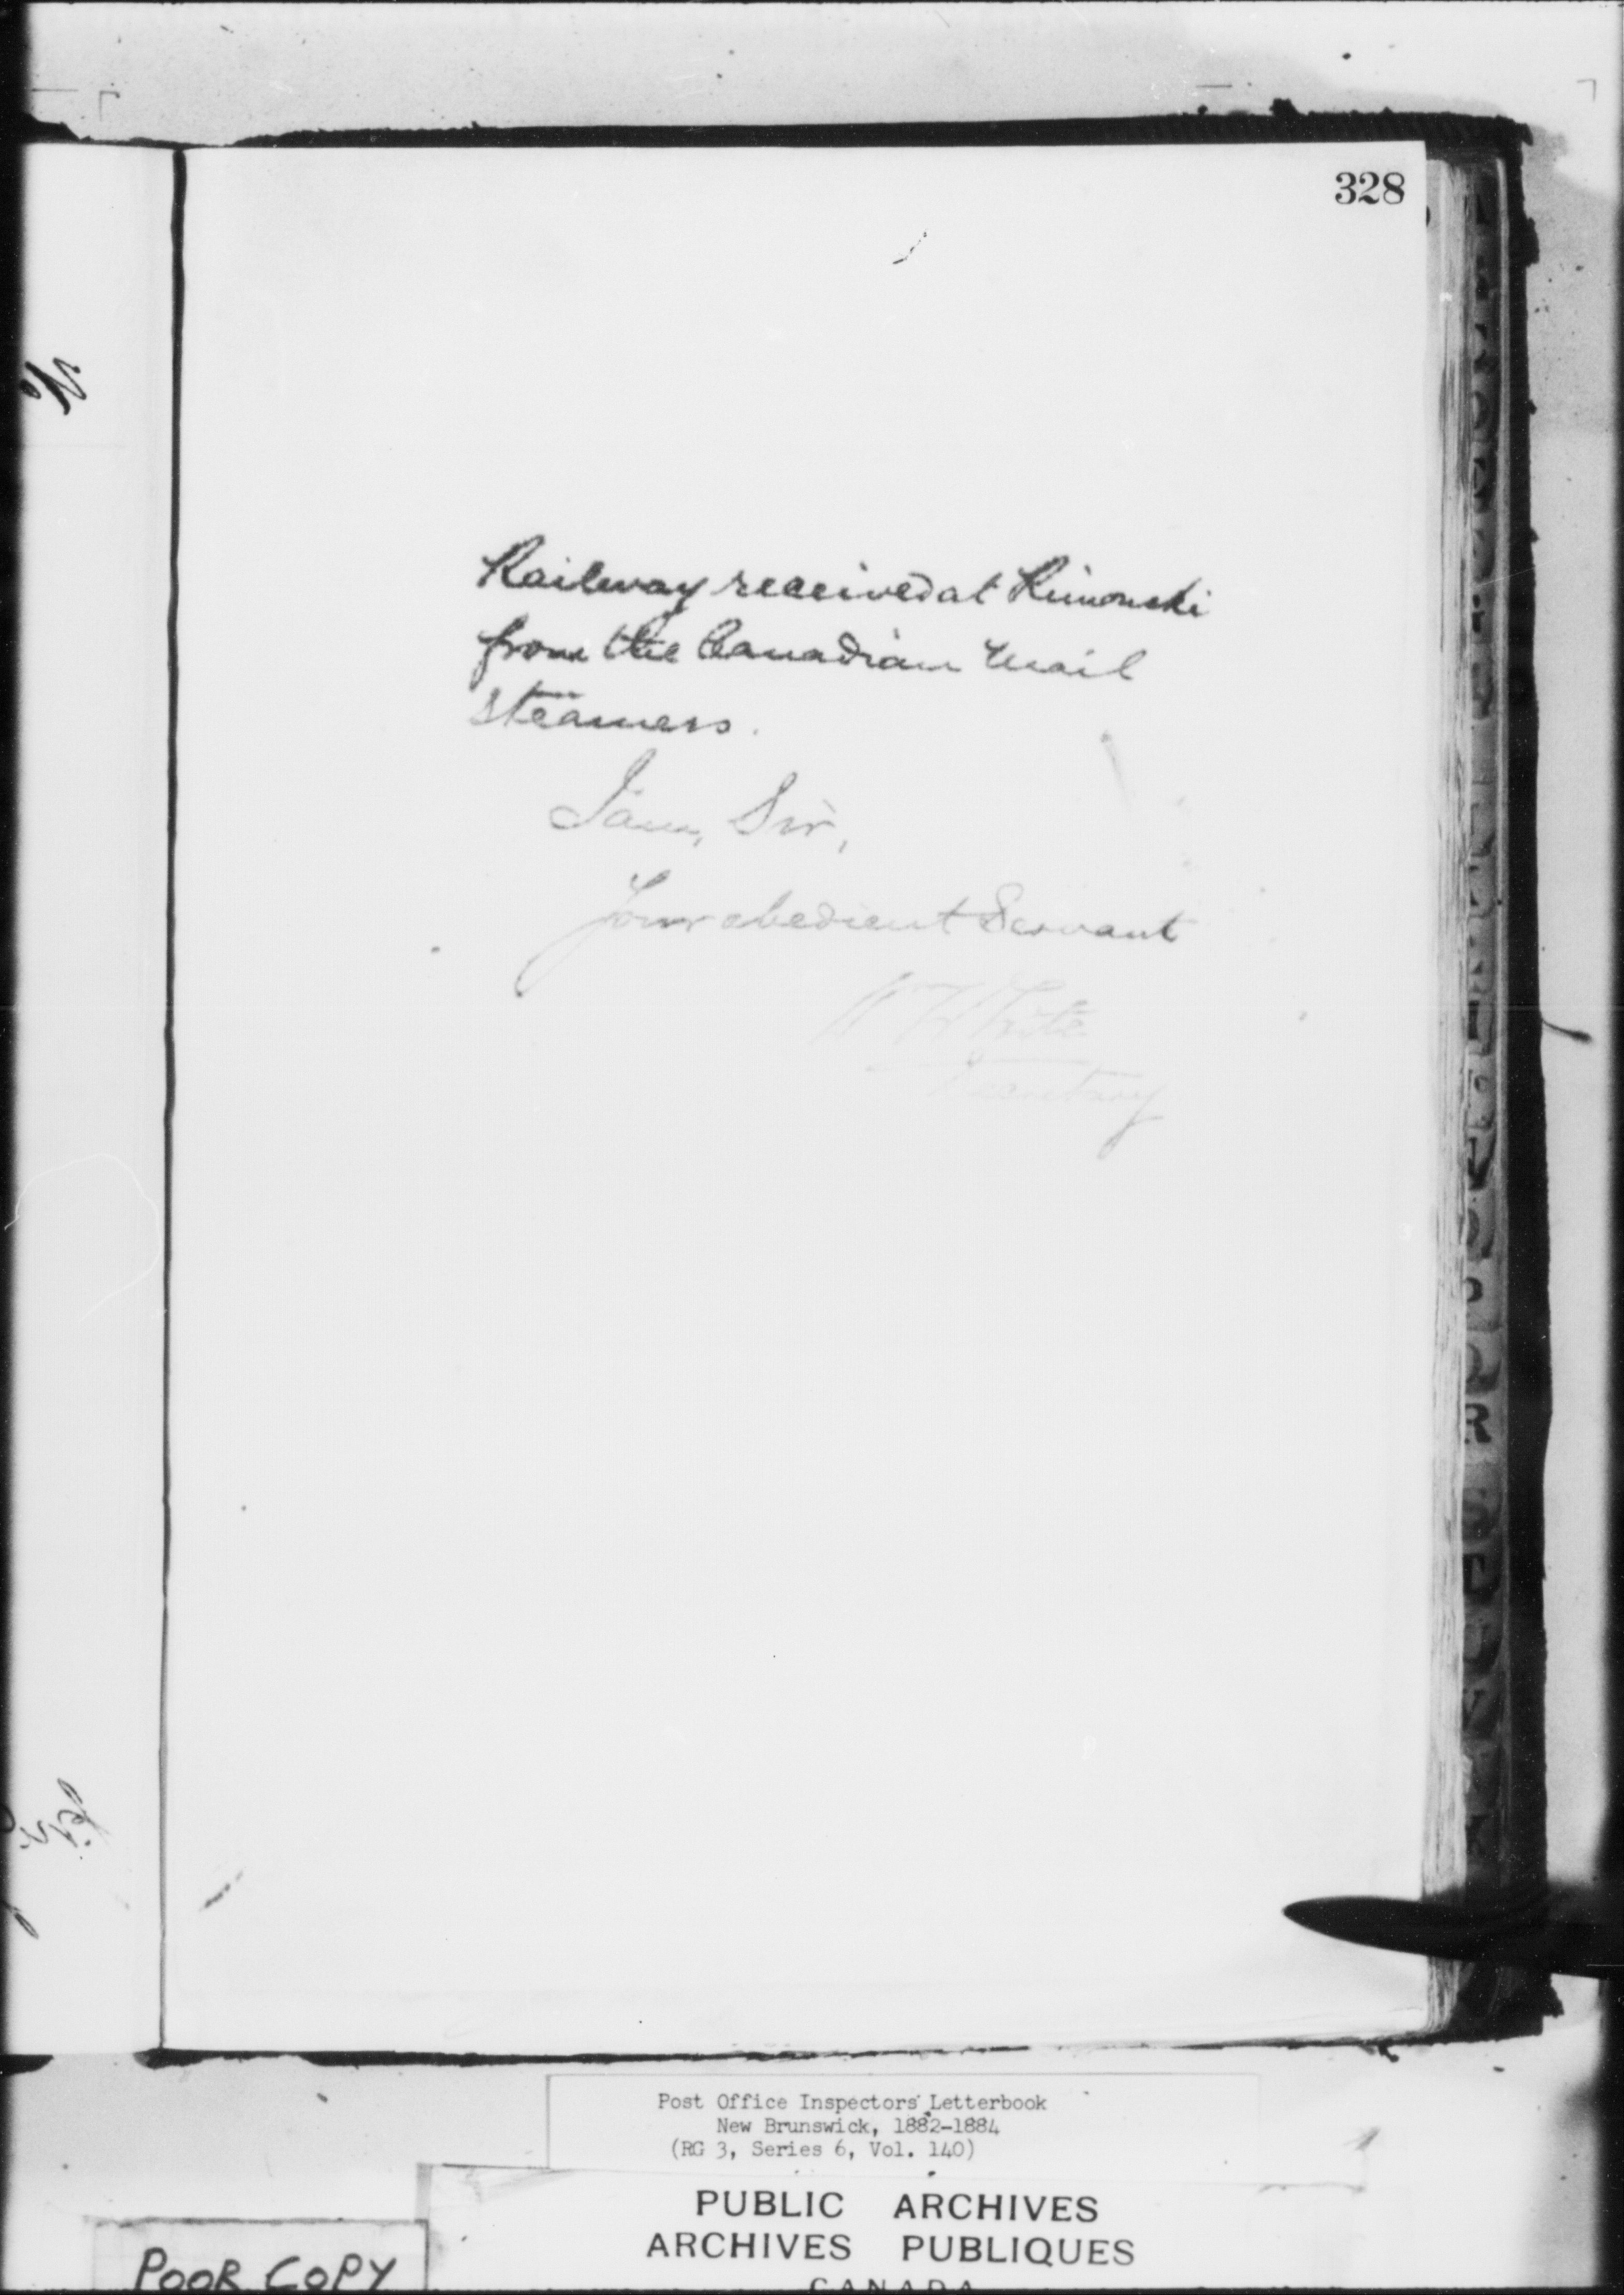 328
Railway received at Rimouski
from the Canadian Mail
Steamers.
I am, Sir,
Your obedient Servant
White
Secretary
Post Office Inspectors' Letterbook
New Brunswick, 1882-1884
(RG 3, Series 6, Vol. 140)
PUBLIC ARCHIVES
ARCHIVES PUBLIQUES
CANADA
POOR COPY